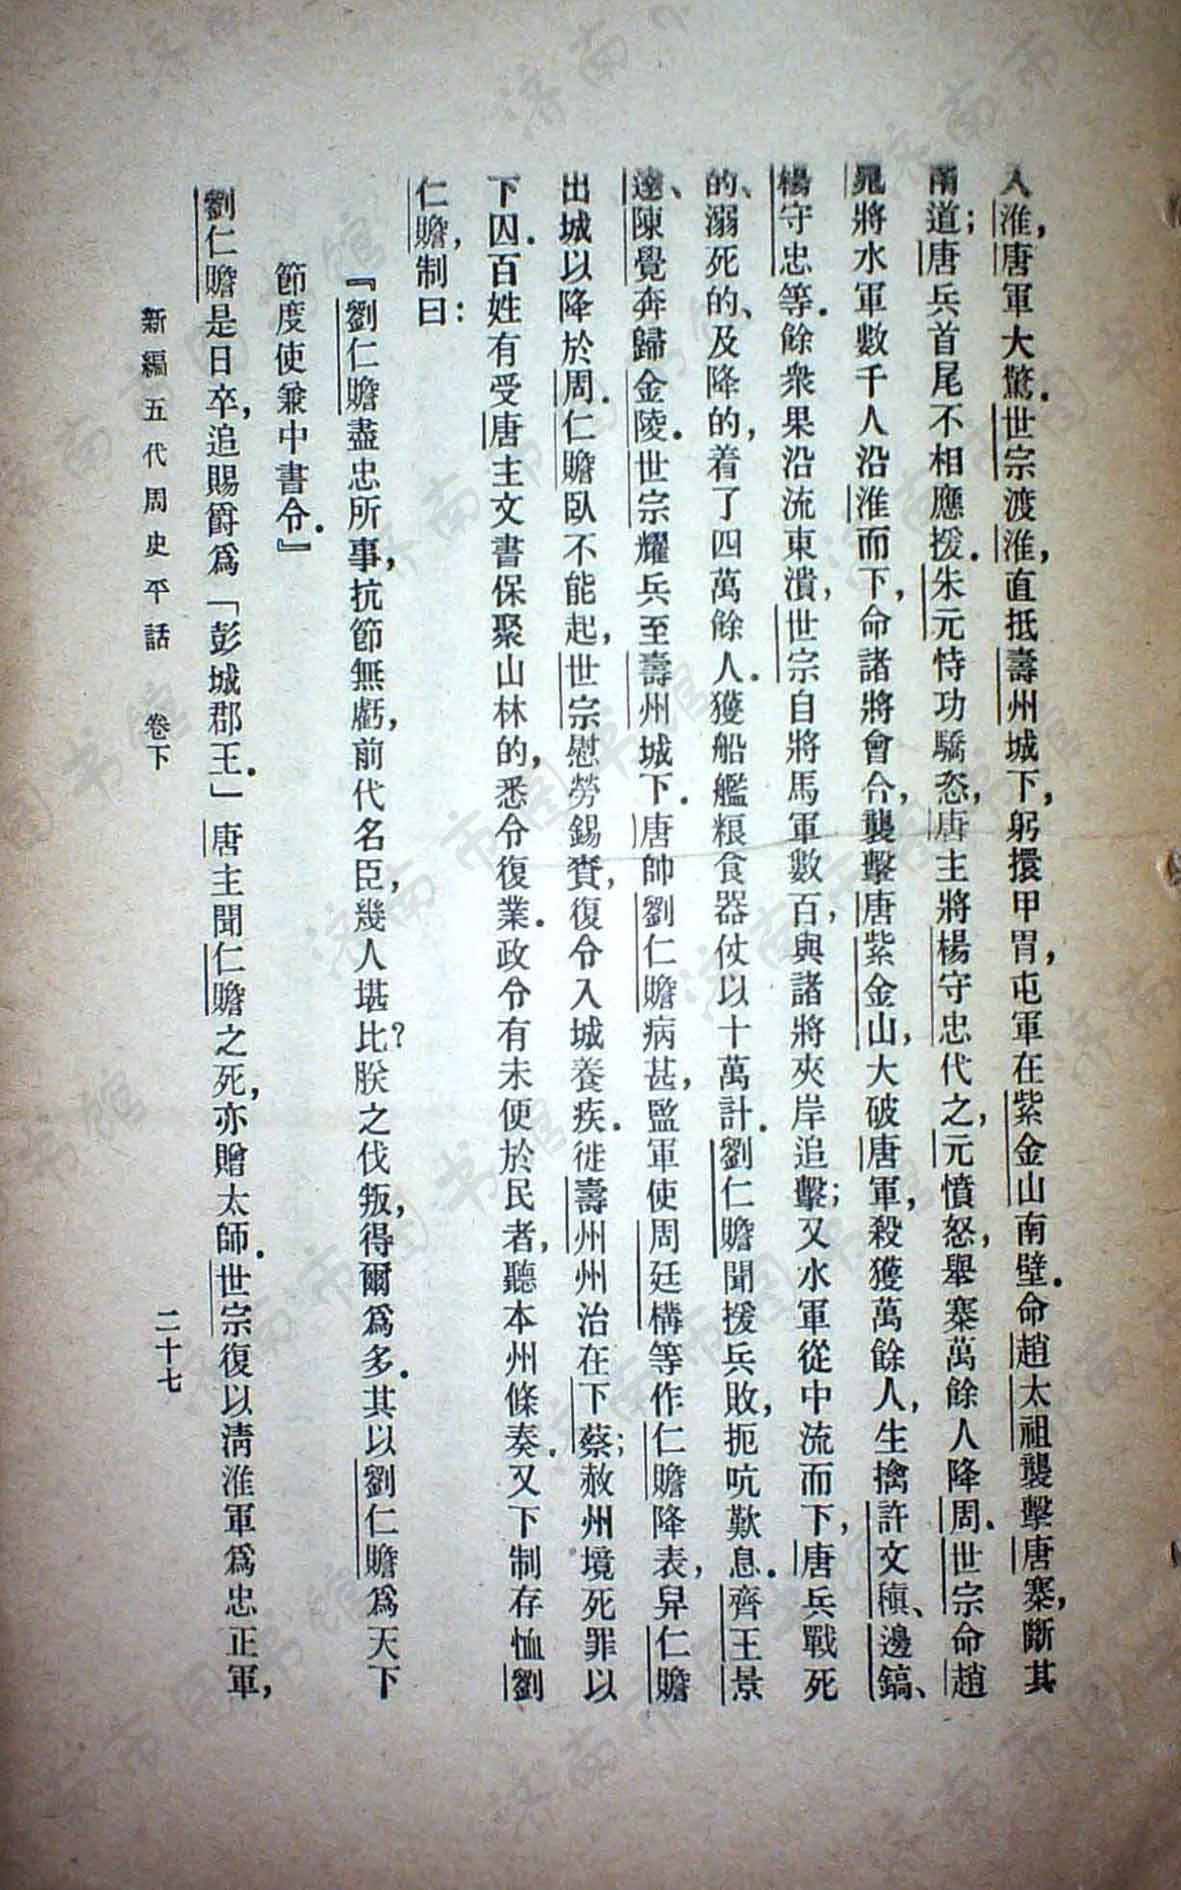 入淮，唐軍大驚．世宗渡淮，直抵壽州城下，躬擐甲胄，屯軍在紫金山南壁．命趙太祖襲擊唐寨，斷其
甬道；唐兵首尾不相應援．朱元恃功驕恣，唐主將楊守忠代之，元憤怒，舉寨萬餘人降周．世宗命趙
晁將水軍數千人沿淮而下，命諸將會合，襲擊唐紫金山，大破唐軍，殺獲萬餘人，生擒許文稹、邊鎬、
楊守忠等．餘衆果沿流東潰，世宗自將馬軍數百，與諸將夾岸追擊；又水軍從中流而下，唐兵戰死
的、溺死的、及降的，着了四萬餘人．獲船艦粮食器仗以十萬計．劉仁贍聞援兵敗，扼吭歎息．齊王景
達、陳覺奔歸金陵．世宗耀兵至壽州城下．唐帥劉仁贍病甚，監軍使周廷構等作仁贍降表，舁仁贍
出城以降於周．仁贍臥不能起，世宗慰勞錫賚，復令入城養疾．徙壽州州治在下蔡；赦州境死罪以
下囚．百姓有受唐主文書保聚山林的，悉令復業．政令有未便於民者，聽本州條奏．又下制存恤劉
仁贍，制曰：
『劉仁贍盡忠所事，抗節無虧，前代名臣，幾人堪比？朕之伐叛，得爾爲多．其以劉仁贍爲天下
節度使兼中書令．』
劉仁贍是日卒，追賜爵爲「彭城郡王．」唐主聞仁贍之死，亦贈太師．世宗復以淸淮軍爲忠正軍，
新編五代周史平話　卷下　二十七
濟南市图书馆